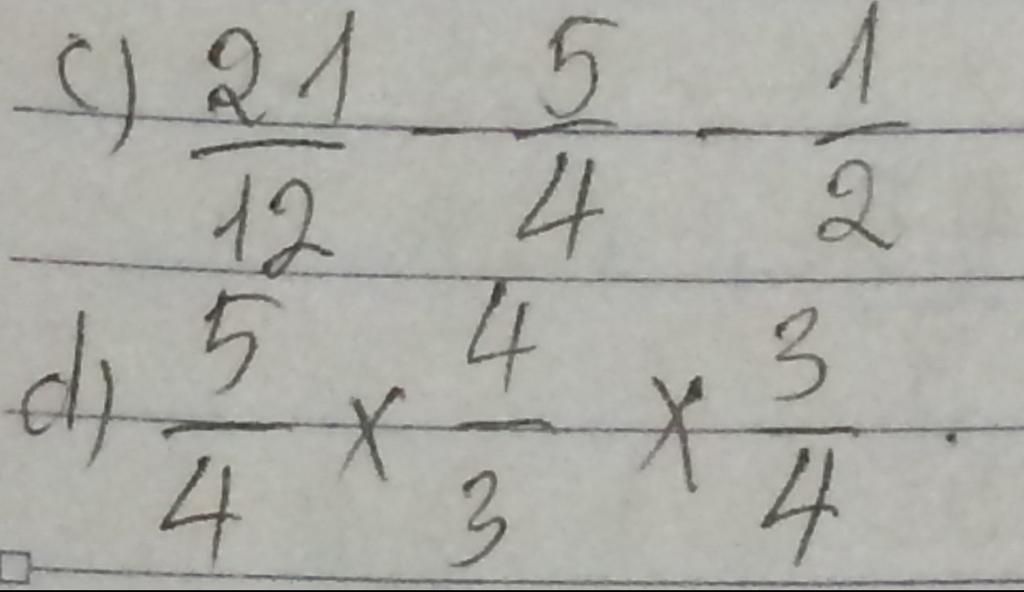 c) 21/12 - 5/4 - 1/2
d) 5/4 x 4/3 x 3/4 .